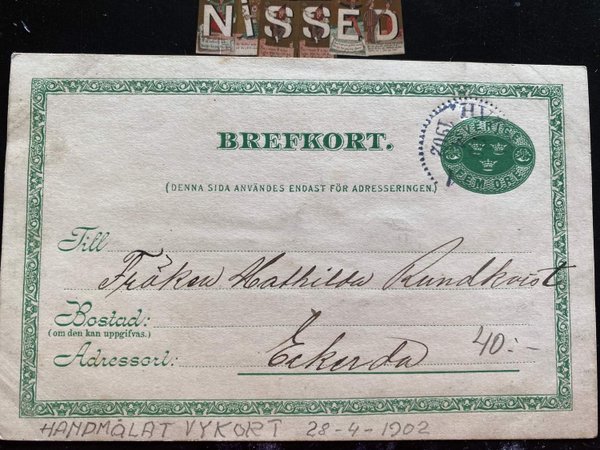 NISSED
BREFKORT.
(DENNA SIDA ANVÄNDES ENDAST FÖR ADRESSERINGEN.)
1902
SVERIGE
FEM ÖRE
Till
Fröken Mathilda Rundkvist
Bostad:
(om den kan uppgifvas.)
Adressort:
Eckerda
40:-
HANDMÅLAT VYKORT 28-4-1902